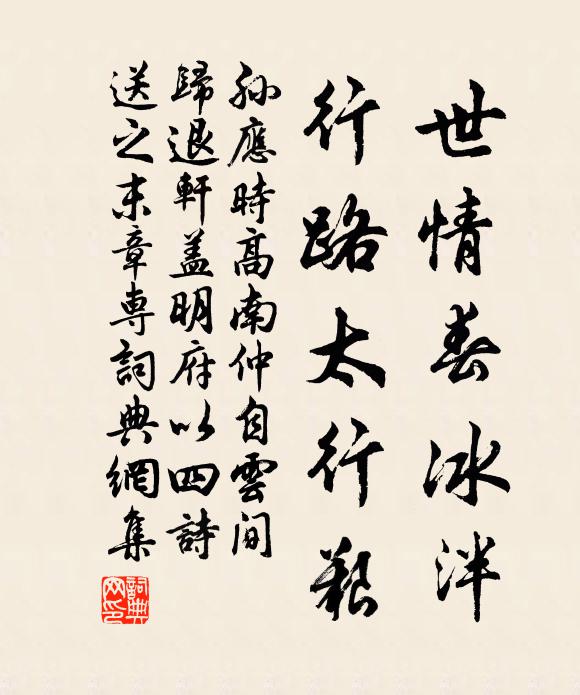 世情春冰泮
行路太行艱
孫應時高南仲自雲间
歸退軒盖明府以四詩
送之末章専詞典網集
詞典网印